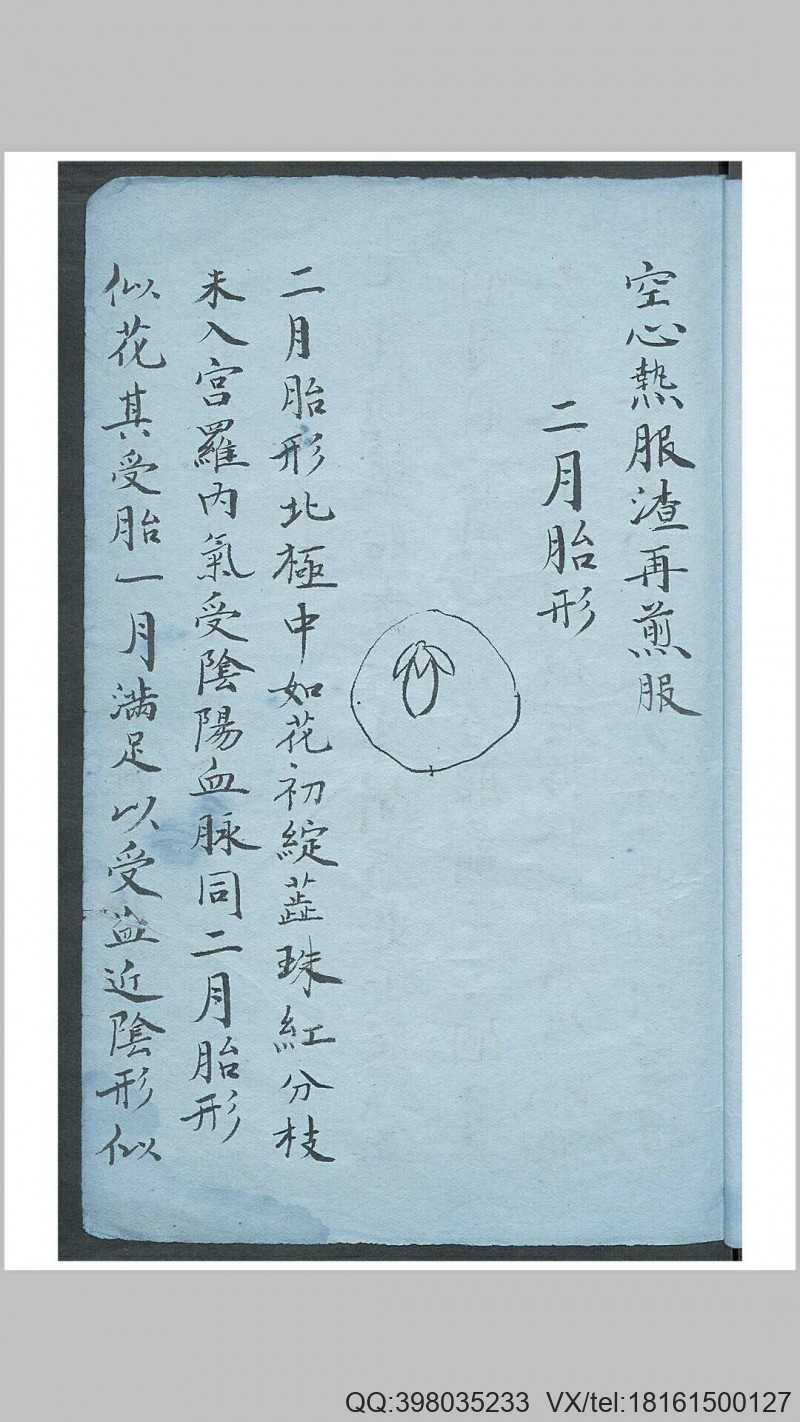 空心熱服渣再煎服
二月胎形
二月胎形北極中如花初綻蕋珠紅分枝
未入宮羅內氣受陰陽血脉同二月胎形
似花其受胎一月滿足以受血近陰形似
QQ:398035233 VX/tel:18161500127